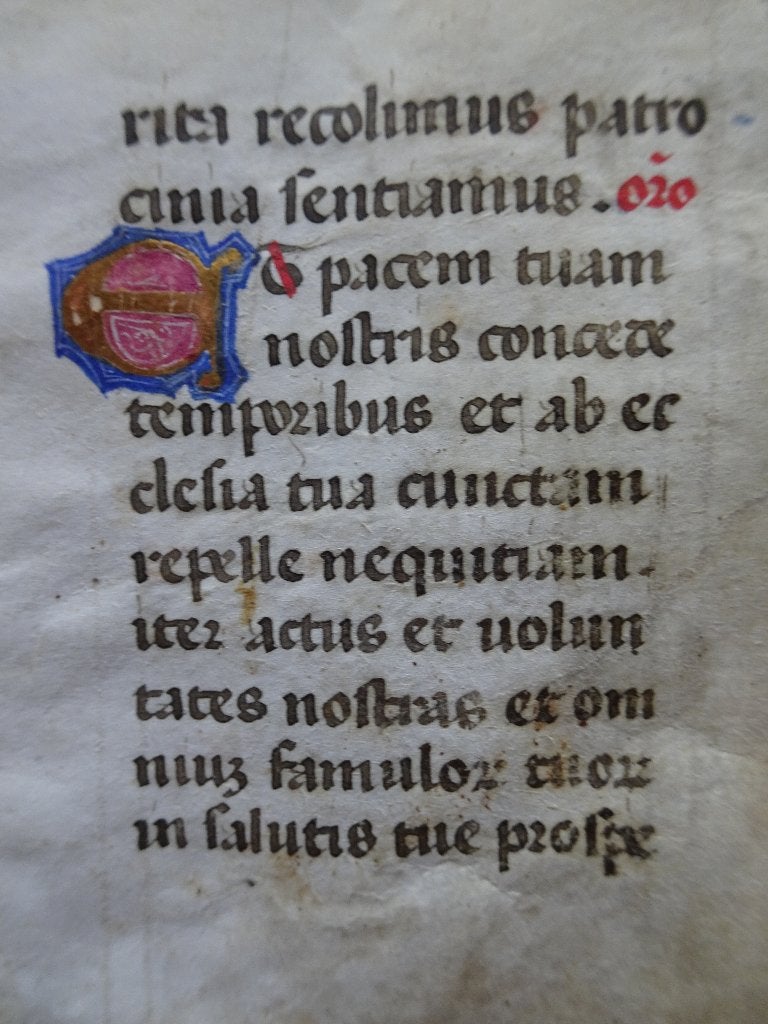 rita recolimus patro
cinia sentiamus. oro
Et pacem tuam
nostris concede
temporibus et ab ec
clesia tua cunctam
repelle nequitiam.
iter actus et uolun
tates nostras et om
niuʒ famuloꝝ tuoꝝ
in salutis tue prospe